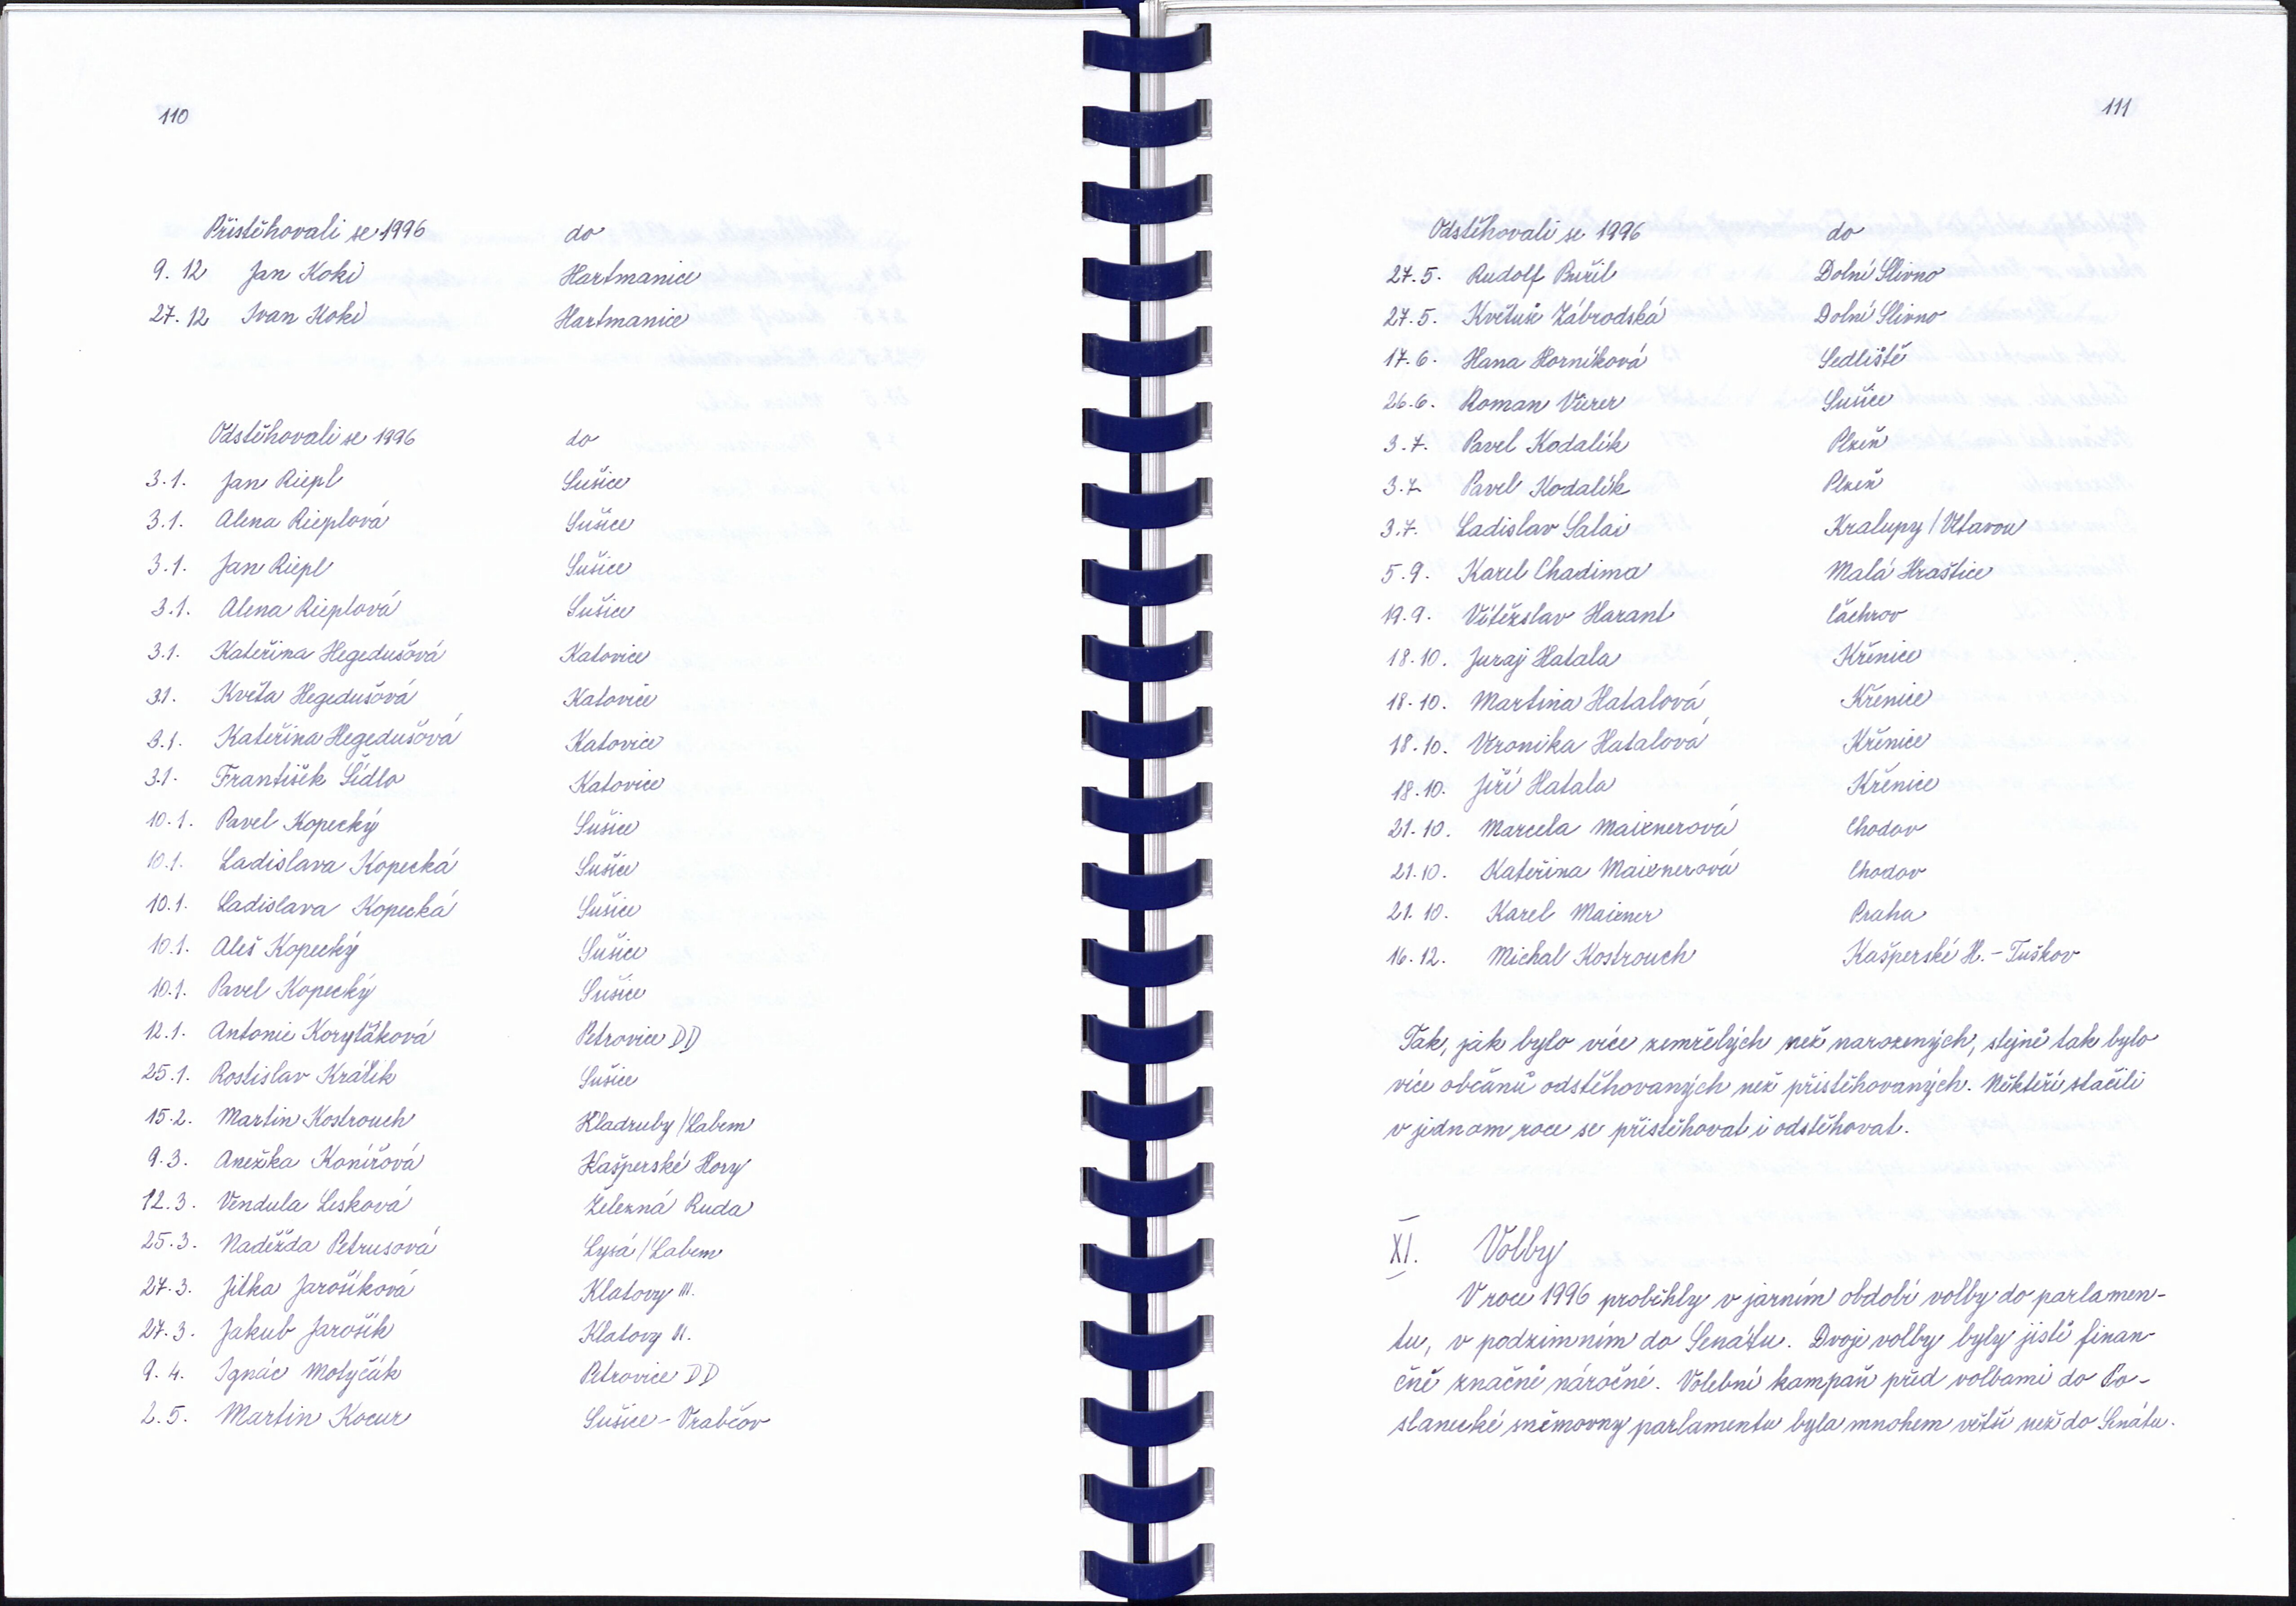 110
Přistěhovali se 1996 do
9. 12 Jan Koki Hartmanice
27. 12 Ivan Koki Hartmanice
Odstěhovali se 1996 do
3.1. Jan Riepl Sušice
3.1. Alena Rieplová Sušice
3.1. Jan Riepl Sušice
3.1. Alena Rieplová Sušice
3.1. Kateřina Hegedušová Katovice
3.1. Květa Hegedušová Katovice
3.1. Kateřina Hegedušová Katovice
3.1. František Šídlo Katovice
10.1. Pavel Kopecký Sušice
10.1. Ladislava Kopecká Sušice
10.1. Ladislava Kopecká Sušice
10.1. Aleš Kopecký Sušice
10.1. Pavel Kopecký Sušice
12.1. Antonie Koryťáková Petrovice DD
25.1. Rostislav Králík Sušice
15.2. Martin Kostrouch Kladruby/Labem
9.3. Anežka Konířová Kašperské Hory
12.3. Vendula Lesková Železná Ruda
25.3. Naděžda Petrusová Lysá/Labem
27.3. Jitka Jarošíková Klatovy III.
27.3. Jakub Jarošík Klatovy II.
9. 4. Ignác Motyčák Petrovice DD
2. 5. Martin Kocur Sušice - Vrabcov
111
Odstěhovali se 1996 do
27.5. Rudolf Buřil Dolní Slivno
27.5. Květuše Zábrodská Dolní Slivno
17.6. Hana Horníková Sedliště
26.6. Roman Vürer Sušice
3.7. Pavel Kodalík Plzeň
3.7. Pavel Kodalík Plzeň
3.7. Ladislav Salai Kralupy/Vltavou
5.9. Karel Chadima Malá Hraštice
19.9. Vítězslav Harant Čachrov
18.10. Juraj Hatala Křenice
18.10. Martina Hatalová Křenice
18.10. Veronika Hatalová Křenice
18.10. Jiří Hatala Křenice
21.10. Marcela Maixnerová Chodov
21.10. Kateřina Maixnerová Chodov
21.10. Karel Maixner Praha
16.12. Michal Kostrouch Kašperské H. - Tuškov
Tak, jak bylo více zemřelých než narozených, stejně tak bylo
více občanů odstěhovaných než přistěhovaných. Někteří stačili
v jednom roce se přistěhovat i odstěhovat.
XI. Volby
V roce 1996 proběhly v jarním období volby do parlamen-
tu, v podzimním do Senátu. Dvoje volby byly jistě finan-
čně značně náročné. Volební kampaň před volbami do Po-
slanecké sněmovny parlamentu byla mnohem větší než do Senátu.